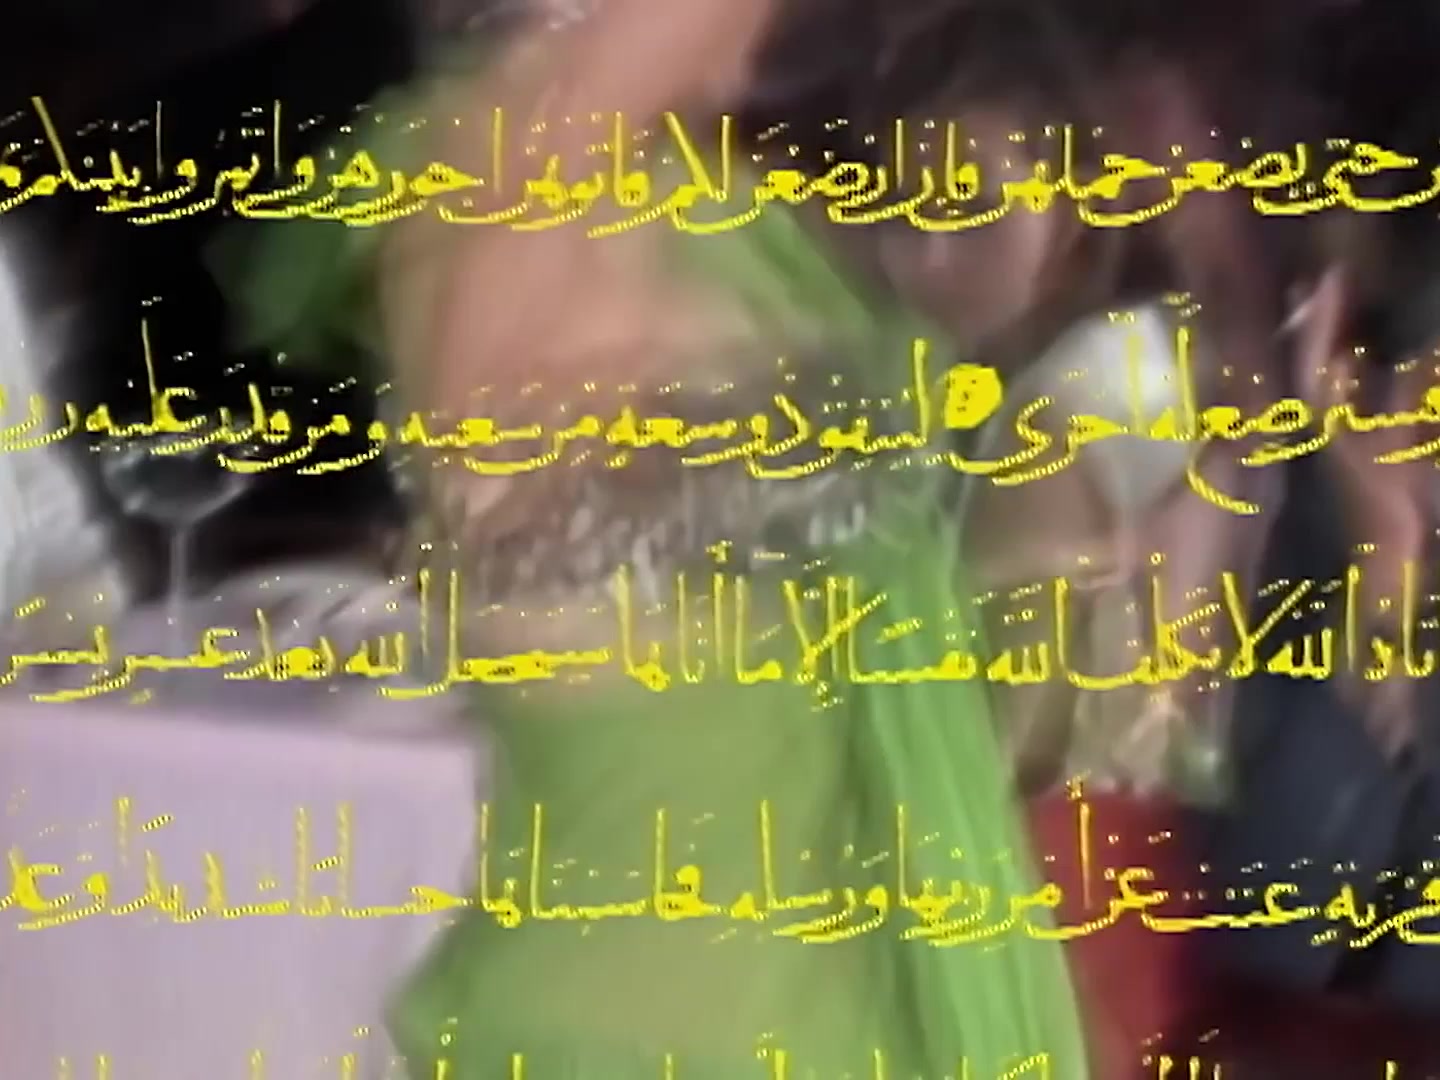 حتى يضعن حملهن فإن أرضعن لكم فآتوهن أجورهن وأتمروا بينكم
فسترضع له أخرى لينفق ذو سعة من سعته ومن قدر عليه
الله لا يكلف الله نفسا إلا ما آتاها سيجعل الله بعد عسر يسرا
قرية عتت عن أمر ربها ورسله فحاسبناها حسابا شديدا